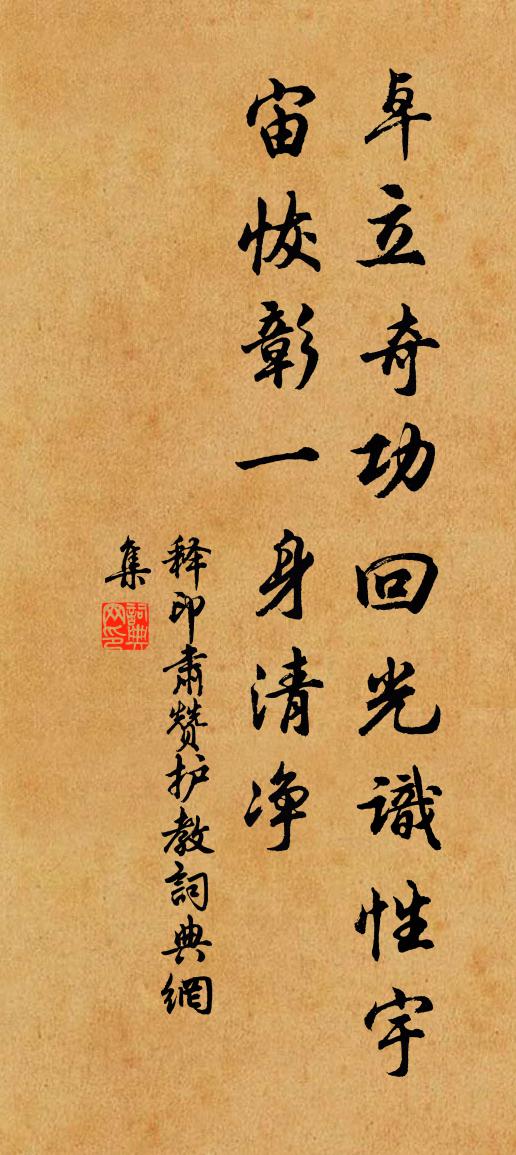 卓立奇功回光識性宇
宙恢彰一身清净
释印肃赞护教詞典網
集
詞典网印